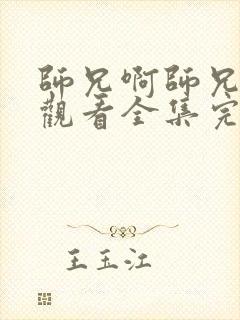 師兄啊師兄
觀看全集完
王玉江